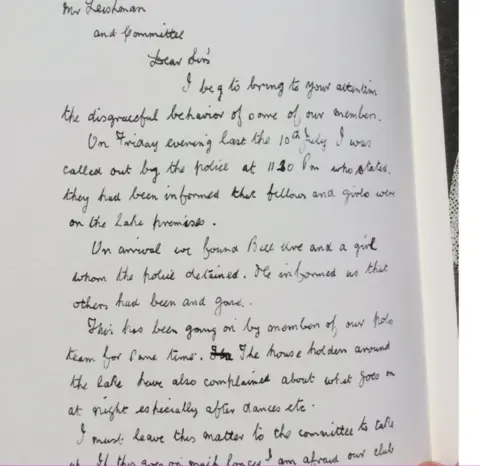 Mr Leishman
and Committee
Dear Sirs
I beg to bring to your attention
the disgraceful behavior of some of our members.
On Friday evening last the 10th July I was
called out by the police at 1130 Pm who stated.
they had been informed that fellows and girls were
on the Lake premises.
On arrival we found Bill and a girl
whom the police detained. He informed us that
others had been and gone.
This has been going on by members of our polo
team for some time. The house holders around
the lake have also complained about what goes on
at night especially after dances etc.
I must leave this matter to the committee to take
up. If this goes on much longer I am afraid our club